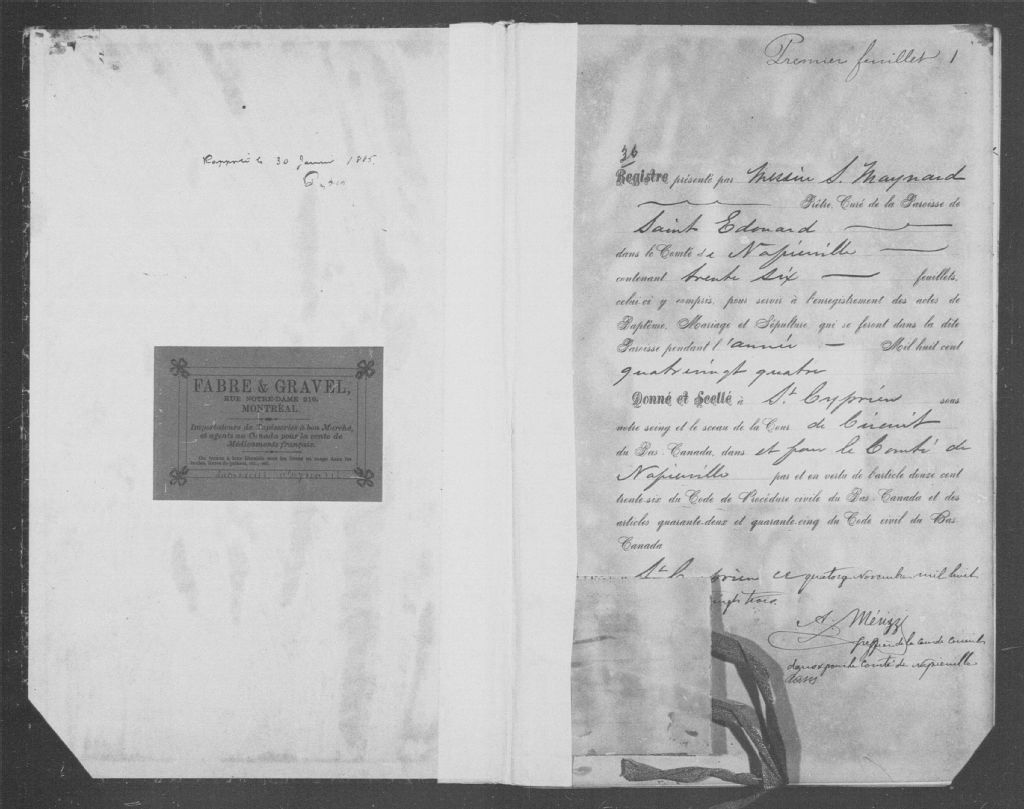 30 1885.
FABRE & GRAVEL,
RUE NOTRE-DAME 219,
MONTREAL
Importateurs de Tapisseries à bon Marché,
et agents au Canada pour la vente de
Médicaments français.
On trouve à leur librairie tous les livres en usage dans les
Premier feuillet 1
36
Registre présenté par Messire S. Maynard
Prêtre, Curé de la Paroisse de
Saint Edouard
dans le Comté de Napierville
contenant trente six feuillets,
celui-ci y compris, pour servir à l'enregistrement des actes de
Baptême, Mariage et Sépulture, qui se feront dans la dite
Paroisse pendant l'année Mil huit cent
quatrevingt quatre
Donné et Scellé à St. Cyprien sous
notre seing et le sceau de la Cour de Circuit
du Bas-Canada, dans et pour le Comté de
Napierville pas et en vertu de l'article douze cent
trente-six du Code de Procédure civile du Bas-Canada et des
articles quarante-deux et quarante-cinq du Code civil du Bas
Canada
St. C prien ce quatorze Novembre mil huit
ingt trois.
A. Mérizzi
greffier de la cour de circuit
dans et pour le comté de Napierville